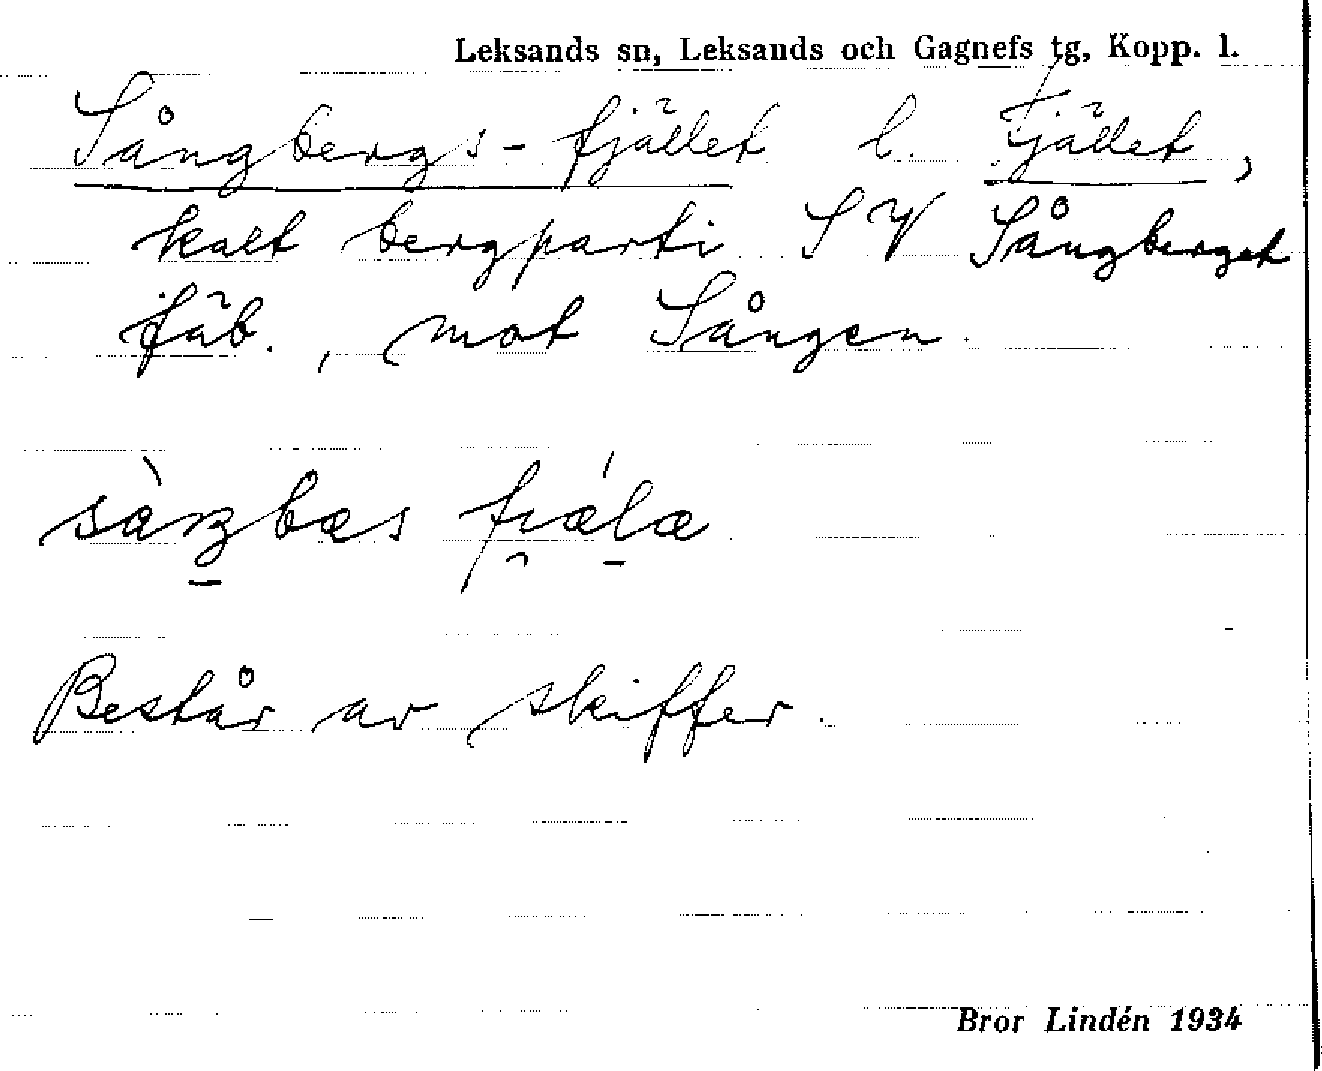 Leksands sn, Leksands och Gagnefs tg, Kopp. l.
Sångbergs-fjället l. Fjället,
kalt bergparti SV Sångberget
fäb., mot Sången.
Består av skiffer.
Bror Lindén 1934